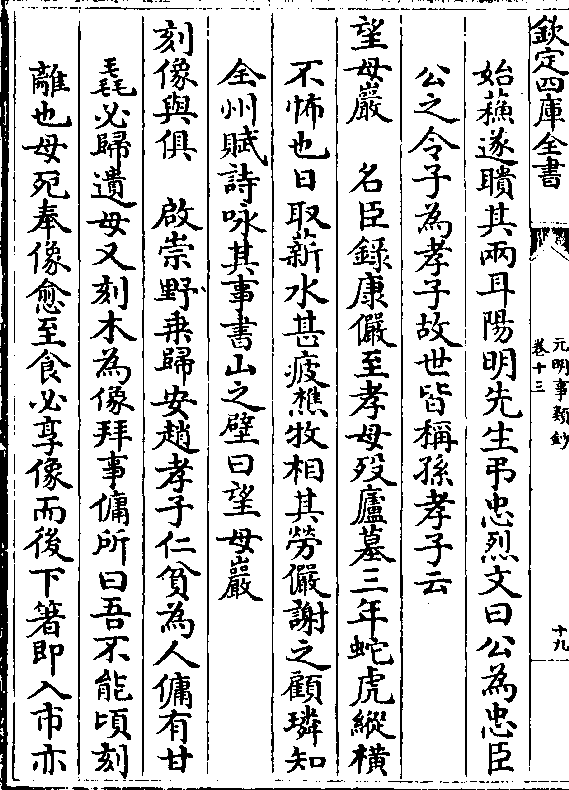 欽定四庫全書
元明事類鈔
卷十三
十九
始蘓遂聵其兩耳陽明先生弔忠烈文曰公為忠臣
公之令子為孝子故世皆稱孫孝子云
望母巖　名臣錄康儼至孝母歿廬墓三年蛇虎縱橫
不怖也日取薪水甚疲樵牧相其勞儼謝之顧璘知
全州賦詩咏其事書山之壁曰望母巖
刻像與俱　啟崇野乗歸安趙孝子仁貧為人傭有甘
毳必歸遺母又刻木為像拜事傭所曰吾不能頃刻
離也母死奉像愈至食必享像而後下箸即入市亦